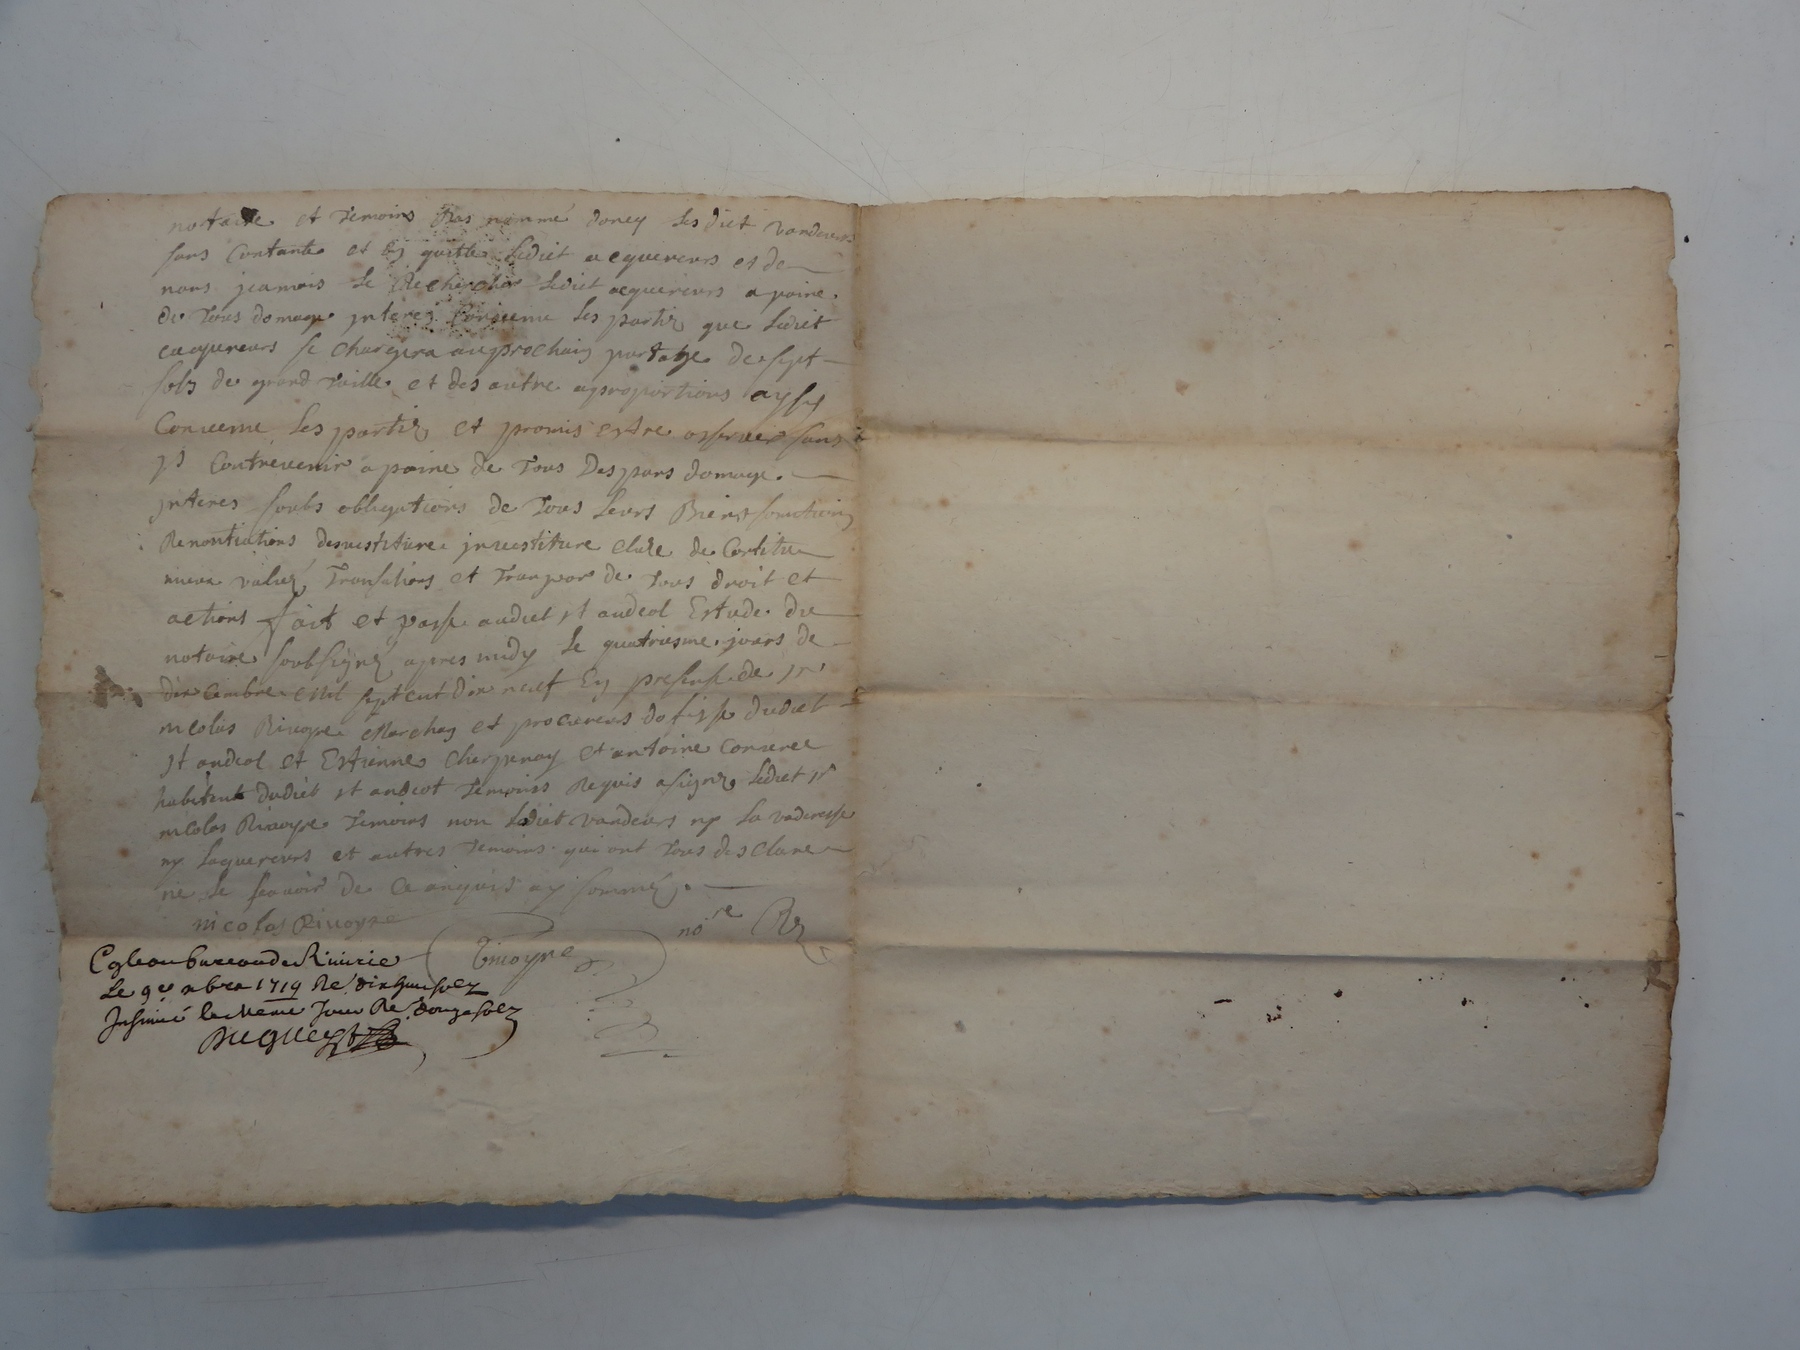 notaire et temoins bas nommé doncq lesdict vandeurs
sons contants et en quitte ledict acquereurs et de
nons jeamois le Rechercher ledict acquereurs a poine
de tous domage jnteres conuenu les partis que ledict
acquereurs se chargera au prochain partage de sept
sols de grand taille et des autre a proportions aynsy
Conuenu les partis et promis estre obseruer sans
y contrevenir a poine de tous despans domage
jnteres soubs obligations de tous leurs Biens
Renontiations desuestiture jnuestiture clause de
mieux valué Translations et Transpor de tous droit et
actions fait et passé audict st andeol Estude du
notaire soubsigné apres midy le quatriesme jours de
dix cembre mil sept cent dix neuf En presense de sr
nicolas Rivoyre Marchan et procureurs do fisse dudict
st andeol et Estienne cherpenay et antoine
habitent dudict st andeol temoins Requis a signé ledict sr
nicolas Rivoyre temoins non ledict vandeurs ny la vanderesse
ny laquereurs et autres temoins qui ont tous desclare
ne le scauoir de ce anquis ay sommé
nicolas Rivoyre
Rivoyre nore
Cole au bureau de Riuirie
Le 9e xbre 1719 Re dix huit solz
Insinué le Meme Jour Re douze solz